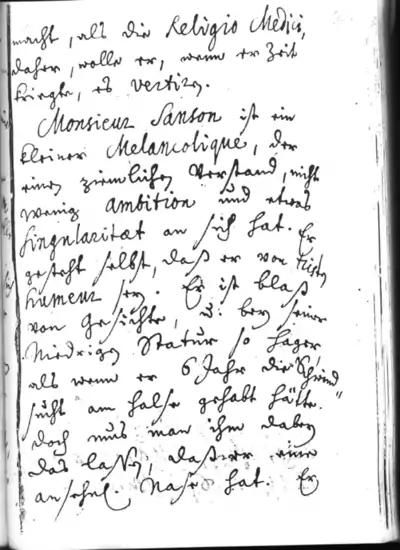 macht, als die Religio Medici,
daher, wolle er, wenn er Zeit
kriegte, es vertiren.
Monsieur Sanson ist ein
kleiner Melancolique, der
einen ziemlichen Verstand, nicht
wenig ambition und etwas
Singularitaet an sich hat. Er
gesteht selbst, daß er von tristen
humeur sey. Er ist blaß
von Gesichte, u: bey seiner
Niedrigen Statur so hager,
als wenn er 6 Jahr die Schwind
sucht am Halse gehabt hätte.
doch mus man ihm dabey
das laßen, daß er eine
ansehnl. Nase hat. Er